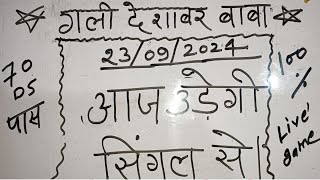 गली देशावर बाबा
23/09/2024
70
05
पास
आज उड़ेगी
सिंगल से।
100%
Live
game